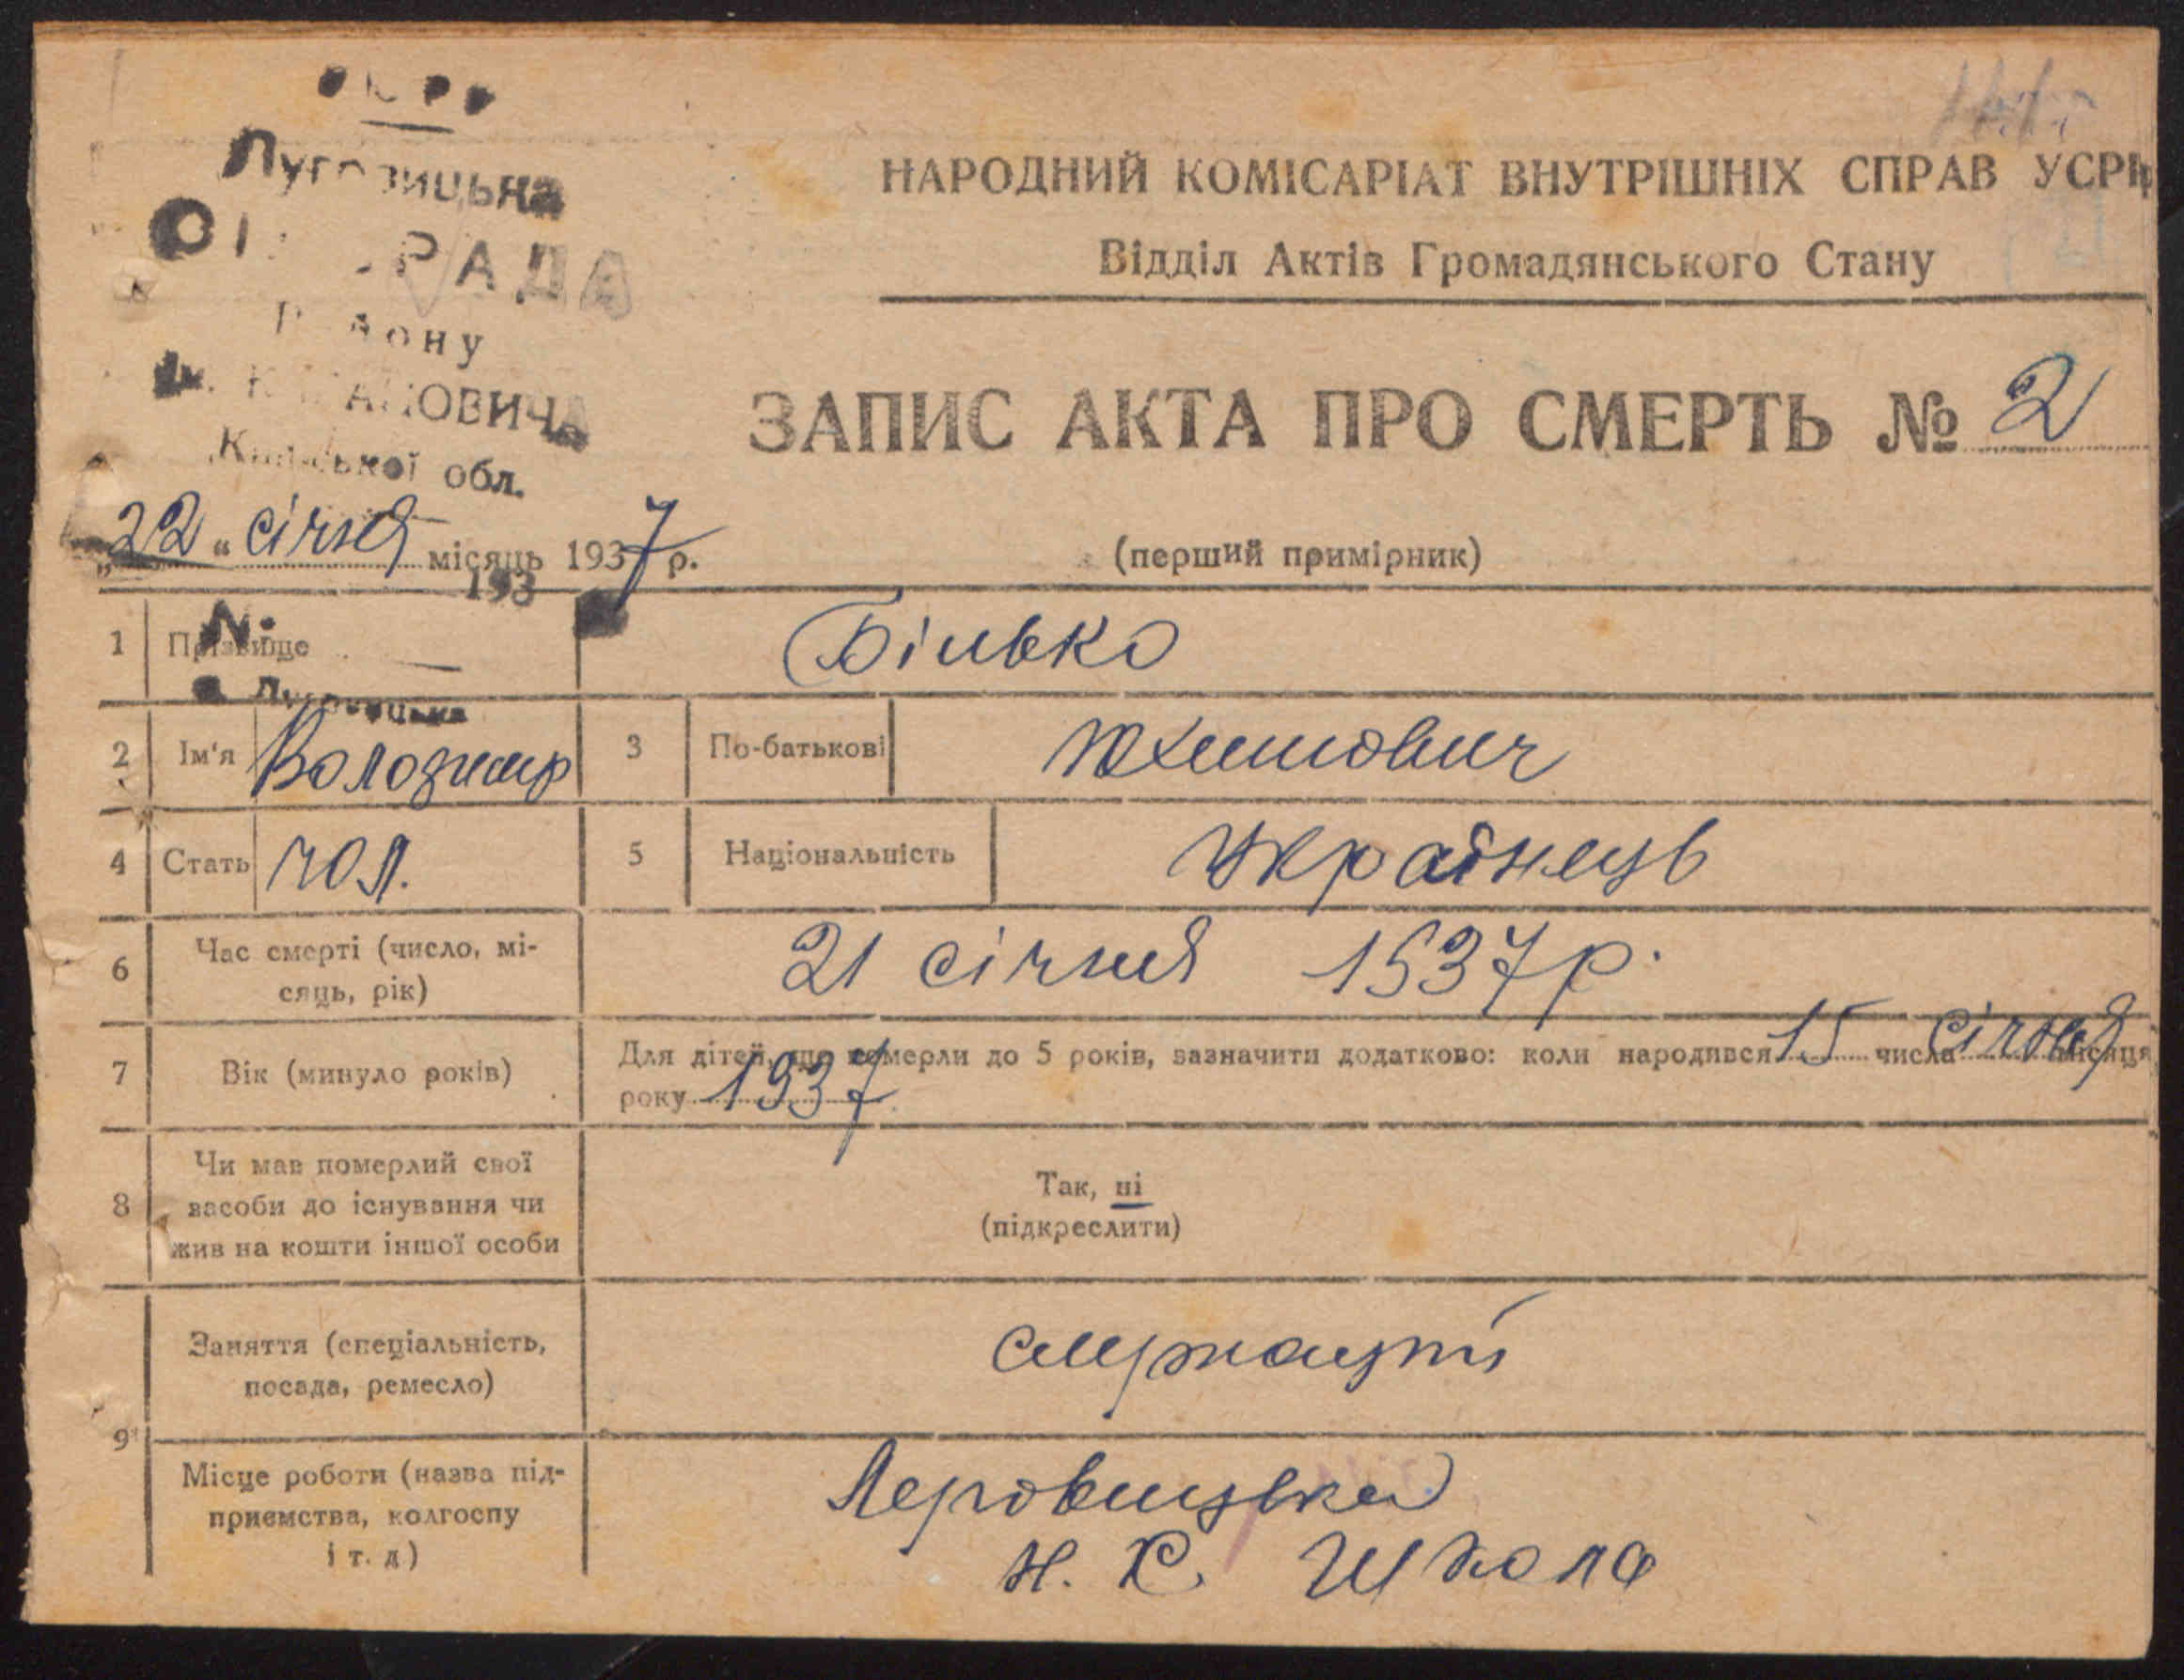 РАДА
Київської обл.
НАРОДНИЙ КОМІСАРІАТ ВНУТРІШНІХ СПРАВ УСРР
Відділ Актів Громадянського Стану
ЗАПИС АКТА ПРО СМЕРТЬ № 2
„22“ січня місяць 1937 р.
(перший примірник)
193
1 Прізвище Білько
2 Ім'я Володимир 3 По-батькові Юхимович
4 Стать чол. 5 Національність Українець
6 Час смерті (число, мі-
сяць, рік) 21 січня 1937 р.
7 Вік (минуло років) Для дітей, що померли до 5 років, зазначити додатково: коли народився 15 числа січня місяця
року 1937
8 Чи мав померлий свої
засоби до існування чи
жив на кошти іншої особи
Так, ні
(підкреслити)
9 Заняття (спеціальність,
посада, ремесло)
Місце роботи (назва під-
приємства, колгоспу
і т. д)
Н. С. Школа